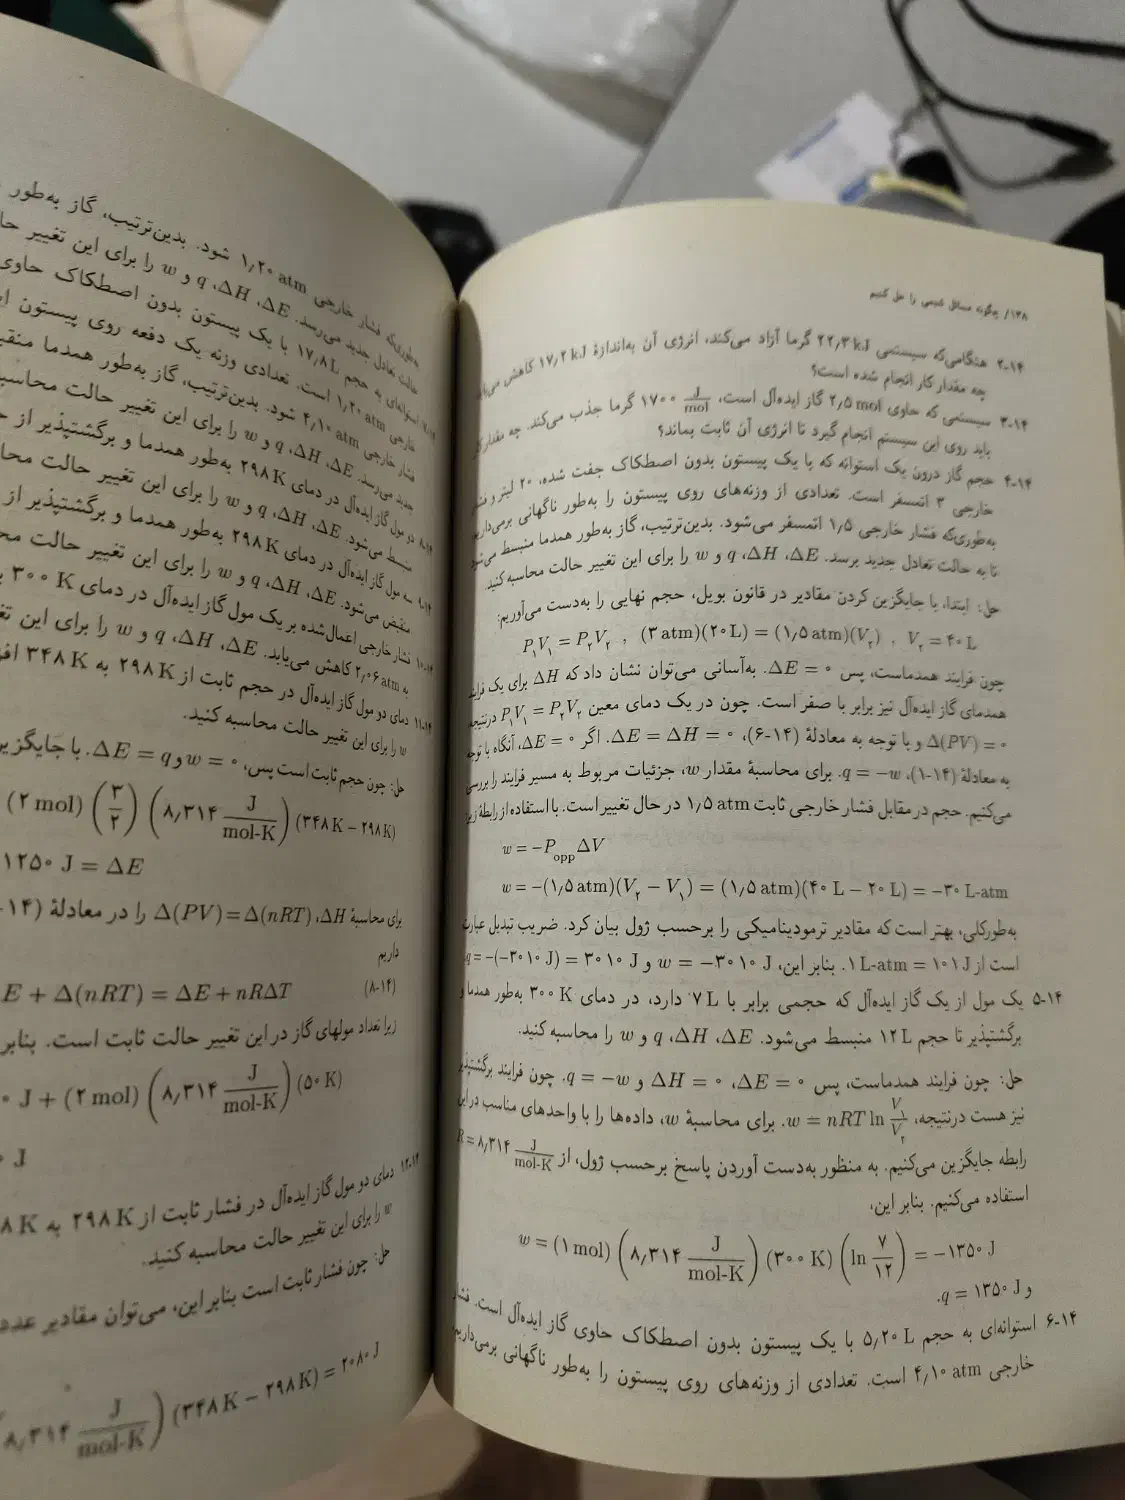 ۱۳۸/ چگونه مسائل شیمی را حل کنیم
۲-۱۴ هنگامی‌که سیستمی ۲۲٫۳ kJ گرما آزاد می‌کند، انرژی آن به‌اندازهٔ ۱۷٫۲ kJ کاهش می‌یابد
چه مقدار کار انجام شده است؟
۳-۱۴ سیستمی که حاوی ۲٫۵ mol گاز ایده‌آل است، ۱۷۰۰ J/mol گرما جذب می‌کند. چه مقدار کار
باید روی این سیستم انجام گیرد تا انرژی آن ثابت بماند؟
۴-۱۴ حجم گاز درون یک استوانه که با یک پیستون بدون اصطکاک جفت شده، ۲۰ لیتر و فشار
خارجی ۳ اتمسفر است. تعدادی از وزنه‌های روی پیستون را به‌طور ناگهانی برمی‌داریم
به‌طوری‌که فشار خارجی ۱٫۵ اتمسفر می‌شود. بدین‌ترتیب، گاز به‌طور همدما منبسط می‌شود
تا به حالت تعادل جدید برسد. ΔE، ΔH، q و w را برای این تغییر حالت محاسبه کنید.
حل: ابتدا، با جایگزین کردن مقادیر در قانون بویل، حجم نهایی را به‌دست می‌آوریم:
P₁V₁ = P₂V₂ , (۳ atm)(۲۰ L) = (۱٫۵ atm)(V₂) , V₂ = ۴۰ L
چون فرایند همدماست، پس ΔE = ۰. به‌آسانی می‌توان نشان داد که ΔH برای یک فرایند
همدمای گاز ایده‌آل نیز برابر با صفر است. چون در یک دمای معین P₁V₁ = P₂V₂ درنتیجه
Δ(PV) = ۰ و با توجه به معادلهٔ (۱۴-۶)، ΔE = ΔH = ۰. اگر ΔE = ۰، آنگاه با توجه
به معادلهٔ (۱۴-۱)، q = −w. برای محاسبهٔ مقدار w، جزئیات مربوط به مسیر فرایند را بررسی
می‌کنیم. حجم در مقابل فشار خارجی ثابت ۱٫۵ atm در حال تغییر است. با استفاده از رابطهٔ زیر
w = −P_opp ΔV
w = −(۱٫۵ atm)(V₂ − V₁) = (۱٫۵ atm)(۴۰ L − ۲۰ L) = −۳۰ L-atm
به‌طورکلی، بهتر است که مقادیر ترمودینامیکی را برحسب ژول بیان کرد. ضریب تبدیل عبارت
است از ۱ L-atm = ۱۰۱ J. بنابر این، w = −۳۰۱۰ J و q = −(−۳۰۱۰ J) = ۳۰۱۰ J.
۵-۱۴ یک مول از یک گاز ایده‌آل که حجمی برابر با ۷ L دارد، در دمای ۳۰۰ K به‌طور همدما و
برگشتپذیر تا حجم ۱۲ L منبسط می‌شود. ΔE، ΔH، q و w را محاسبه کنید.
حل: چون فرایند همدماست، پس ΔE = ۰، ΔH = ۰ و q = −w. چون فرایند برگشتپذیر
نیز هست درنتیجه، w = nRT ln V₁/V₂. برای محاسبهٔ w، داده‌ها را با واحدهای مناسب در این
رابطه جایگزین می‌کنیم. به منظور به‌دست آوردن پاسخ برحسب ژول، از R = ۸٫۳۱۴ J/mol-K
استفاده می‌کنیم. بنابر این،
w = (۱ mol) (۸٫۳۱۴ J/mol-K) (۳۰۰ K) (ln ۷/۱۲) = −۱۳۵۰ J
و q = ۱۳۵۰ J.
۶-۱۴ استوانه‌ای به حجم ۵٫۲۰ L با یک پیستون بدون اصطکاک حاوی گاز ایده‌آل است. فشار
خارجی ۴٫۱۰ atm است. تعدادی از وزنه‌های روی پیستون را به‌طور ناگهانی برمی‌داریم
به‌طوری‌که فشار خارجی ۱٫۲۰ atm شود. بدین‌ترتیب، گاز به‌طور
حالت تعادل جدید می‌رسد. ΔE، ΔH، q و w را برای این تغییر
استوانه‌ای به حجم ۱۷٫۸ L با یک پیستون بدون اصطکاک حاوی
خارجی ۱٫۲۰ atm است. تعدادی وزنه یک دفعه روی پیستون
فشار خارجی ۴٫۱۰ atm شود. بدین‌ترتیب، گاز به‌طور همدما
جدید می‌رسد. ΔE، ΔH، q و w را برای این تغییر حالت
دو مول گاز ایده‌آل در دمای ۲۹۸ K به‌طور همدما و برگشتپذیر از
منبسط می‌شود. ΔE، ΔH، q و w را برای این تغییر حالت
سه مول گاز ایده‌آل در دمای ۲۹۸ K به‌طور همدما و برگشتپذیر از
منقبض می‌شود. ΔE، ΔH، q و w را برای این تغییر حالت
۱۰-۱۴ فشار خارجی اعمال‌شده بر یک مول گاز ایده‌آل در دمای ۳۰۰ K
به ۲٫۰۶ atm کاهش می‌یابد. ΔE، ΔH، q و w را برای این
۱۱-۱۴ دمای دو مول گاز ایده‌آل در حجم ثابت از ۲۹۸ K به ۳۴۸ K
w را برای این تغییر حالت محاسبه کنید.
حل: چون حجم ثابت است پس، w = ۰ و ΔE = q. با جایگزین
(۲ mol) (۳/۲) (۸٫۳۱۴ J/mol-K) (۳۴۸ K − ۲۹۸ K)
۱۲۵۰ J = ΔE
برای محاسبهٔ ΔH، Δ(PV) = Δ(nRT) را در معادلهٔ
داریم
E + Δ(nRT) = ΔE + nRΔT (۸-۱۴)
زیرا تعداد مولهای گاز در این تغییر حالت ثابت است. بنابر
۰ J + (۲ mol) (۸٫۳۱۴ J/mol-K) (۵۰ K)
J
۱۲-۱۴ دمای دو مول گاز ایده‌آل در فشار ثابت از ۲۹۸ K به
w را برای این تغییر حالت محاسبه کنید.
حل: چون فشار ثابت است بنابر این، می‌توان مقادیر
۸٫۳۱۴ J/mol-K) (۳۴۸ K − ۲۹۸ K) = ۲۰۸۰ J